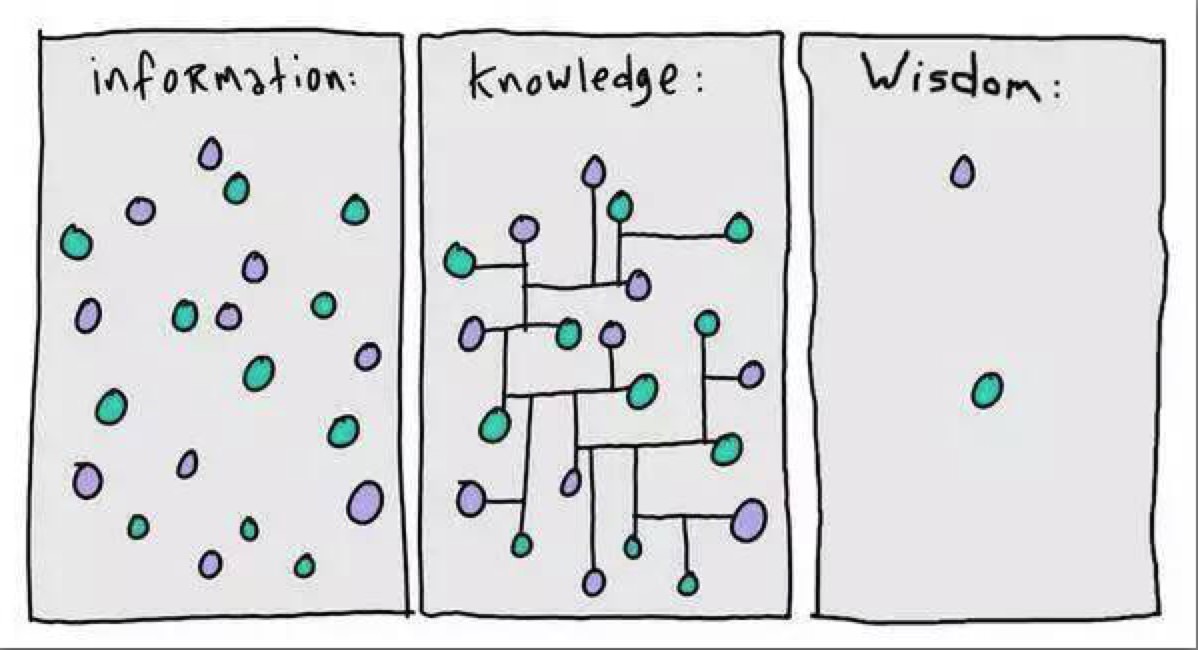 information:
knowledge:
Wisdom: